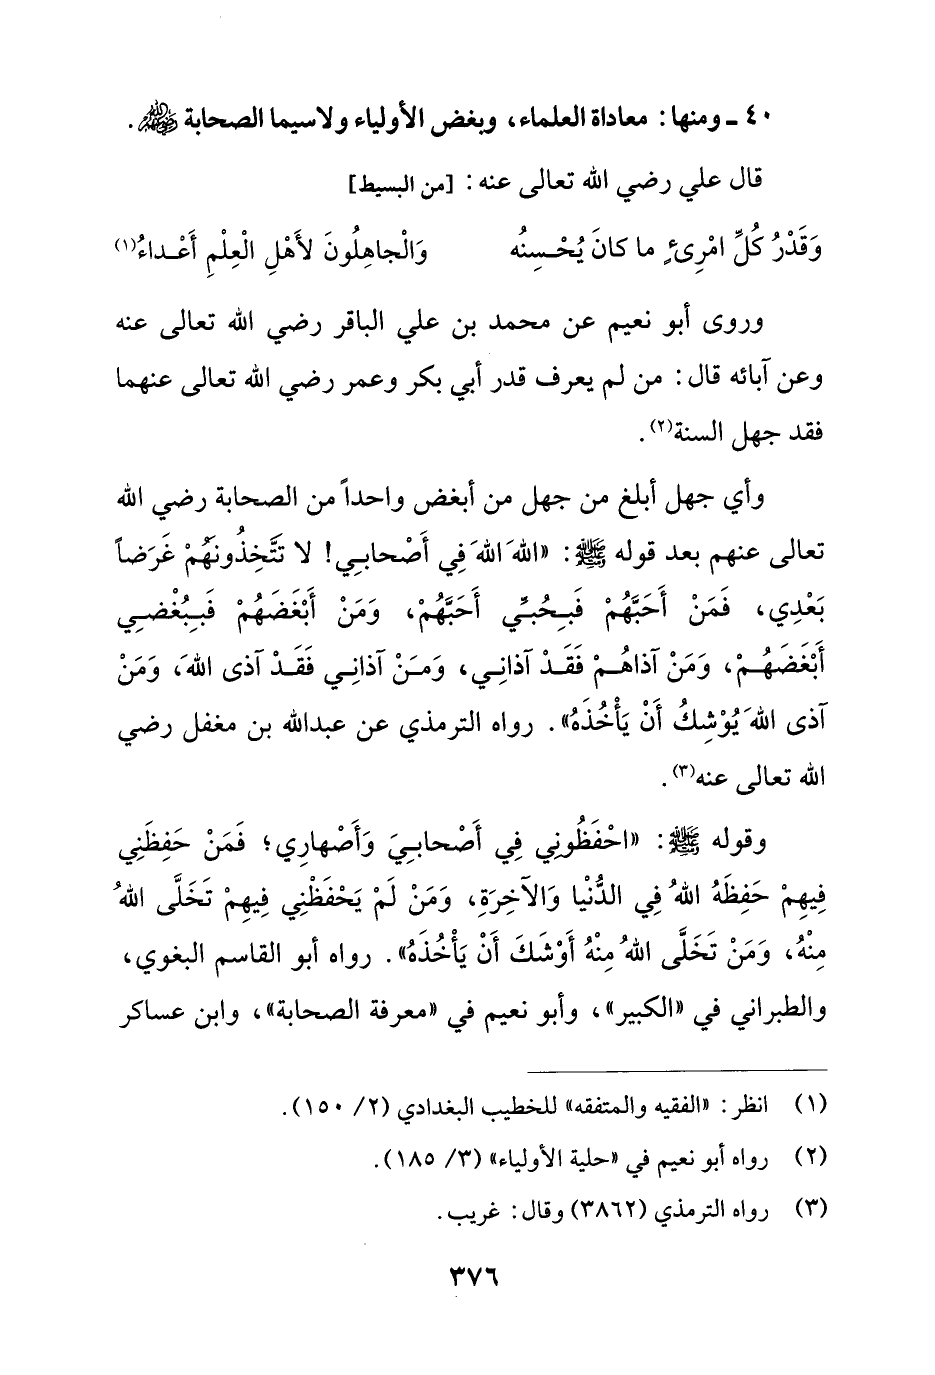 ٤٠ ـ ومنها: معاداة العلماء، وبغض الأولياء ولاسيما الصحابة ﵃.
قال علي رضي الله تعالى عنه: [من البسيط]
وَقَدْرُ كُلِّ امْرِئٍ ما كانَ يُحْسِنُه وَالْجاهِلُونَ لأَهْلِ الْعِلْمِ أَعْداءُ(١)
وروى أبو نعيم عن محمد بن علي الباقر رضي الله تعالى عنه
وعن آبائه قال: من لم يعرف قدر أبي بكر وعمر رضي الله تعالى عنهما
فقد جهل السنة(٢).
وأي جهل أبلغ من جهل من أبغض واحداً من الصحابة رضي الله
تعالى عنهم بعد قوله ﷺ: «اللهَ اللهَ فِي أَصْحابِي! لا تَتَّخِذُونَهُمْ غَرَضاً
بَعْدِي، فَمَنْ أَحَبَّهُمْ فَبِحُبِّي أَحَبَّهُمْ، وَمَنْ أَبْغَضَهُمْ فَبِبُغْضِي
أَبْغَضَهُمْ، وَمَنْ آذاهُمْ فَقَدْ آذانِي، وَمَنْ آذانِي فَقَدْ آذى اللهَ، وَمَنْ
آذى اللهَ يُوْشِكُ أَنْ يَأْخُذَهُ». رواه الترمذي عن عبدالله بن مغفل رضي
الله تعالى عنه(٣).
وقوله ﷺ: «احْفَظُونِي فِي أَصْحابِيَ وَأَصْهارِي؛ فَمَنْ حَفِظَنِي
فِيهِمْ حَفِظَهُ اللهُ فِي الدُّنْيا وَالآخِرَةِ، وَمَنْ لَمْ يَحْفَظْنِي فِيهِمْ تَخَلَّى اللهُ
مِنْهُ، وَمَنْ تَخَلَّى اللهُ مِنْهُ أَوْشَكَ أَنْ يَأْخُذَهُ». رواه أبو القاسم البغوي،
والطبراني في «الكبير»، وأبو نعيم في «معرفة الصحابة»، وابن عساكر
(١) انظر: «الفقيه والمتفقه» للخطيب البغدادي (٢/ ١٥٠).
(٢) رواه أبو نعيم في «حلية الأولياء» (٣/ ١٨٥).
(٣) رواه الترمذي (٣٨٦٢) وقال: غريب.
٣٧٦